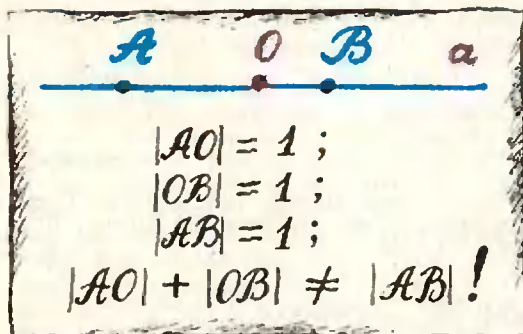 A O B a
|AO| = 1 ;
|OB| = 1 ;
|AB| = 1 ;
|AO| + |OB| ≠ |AB| !